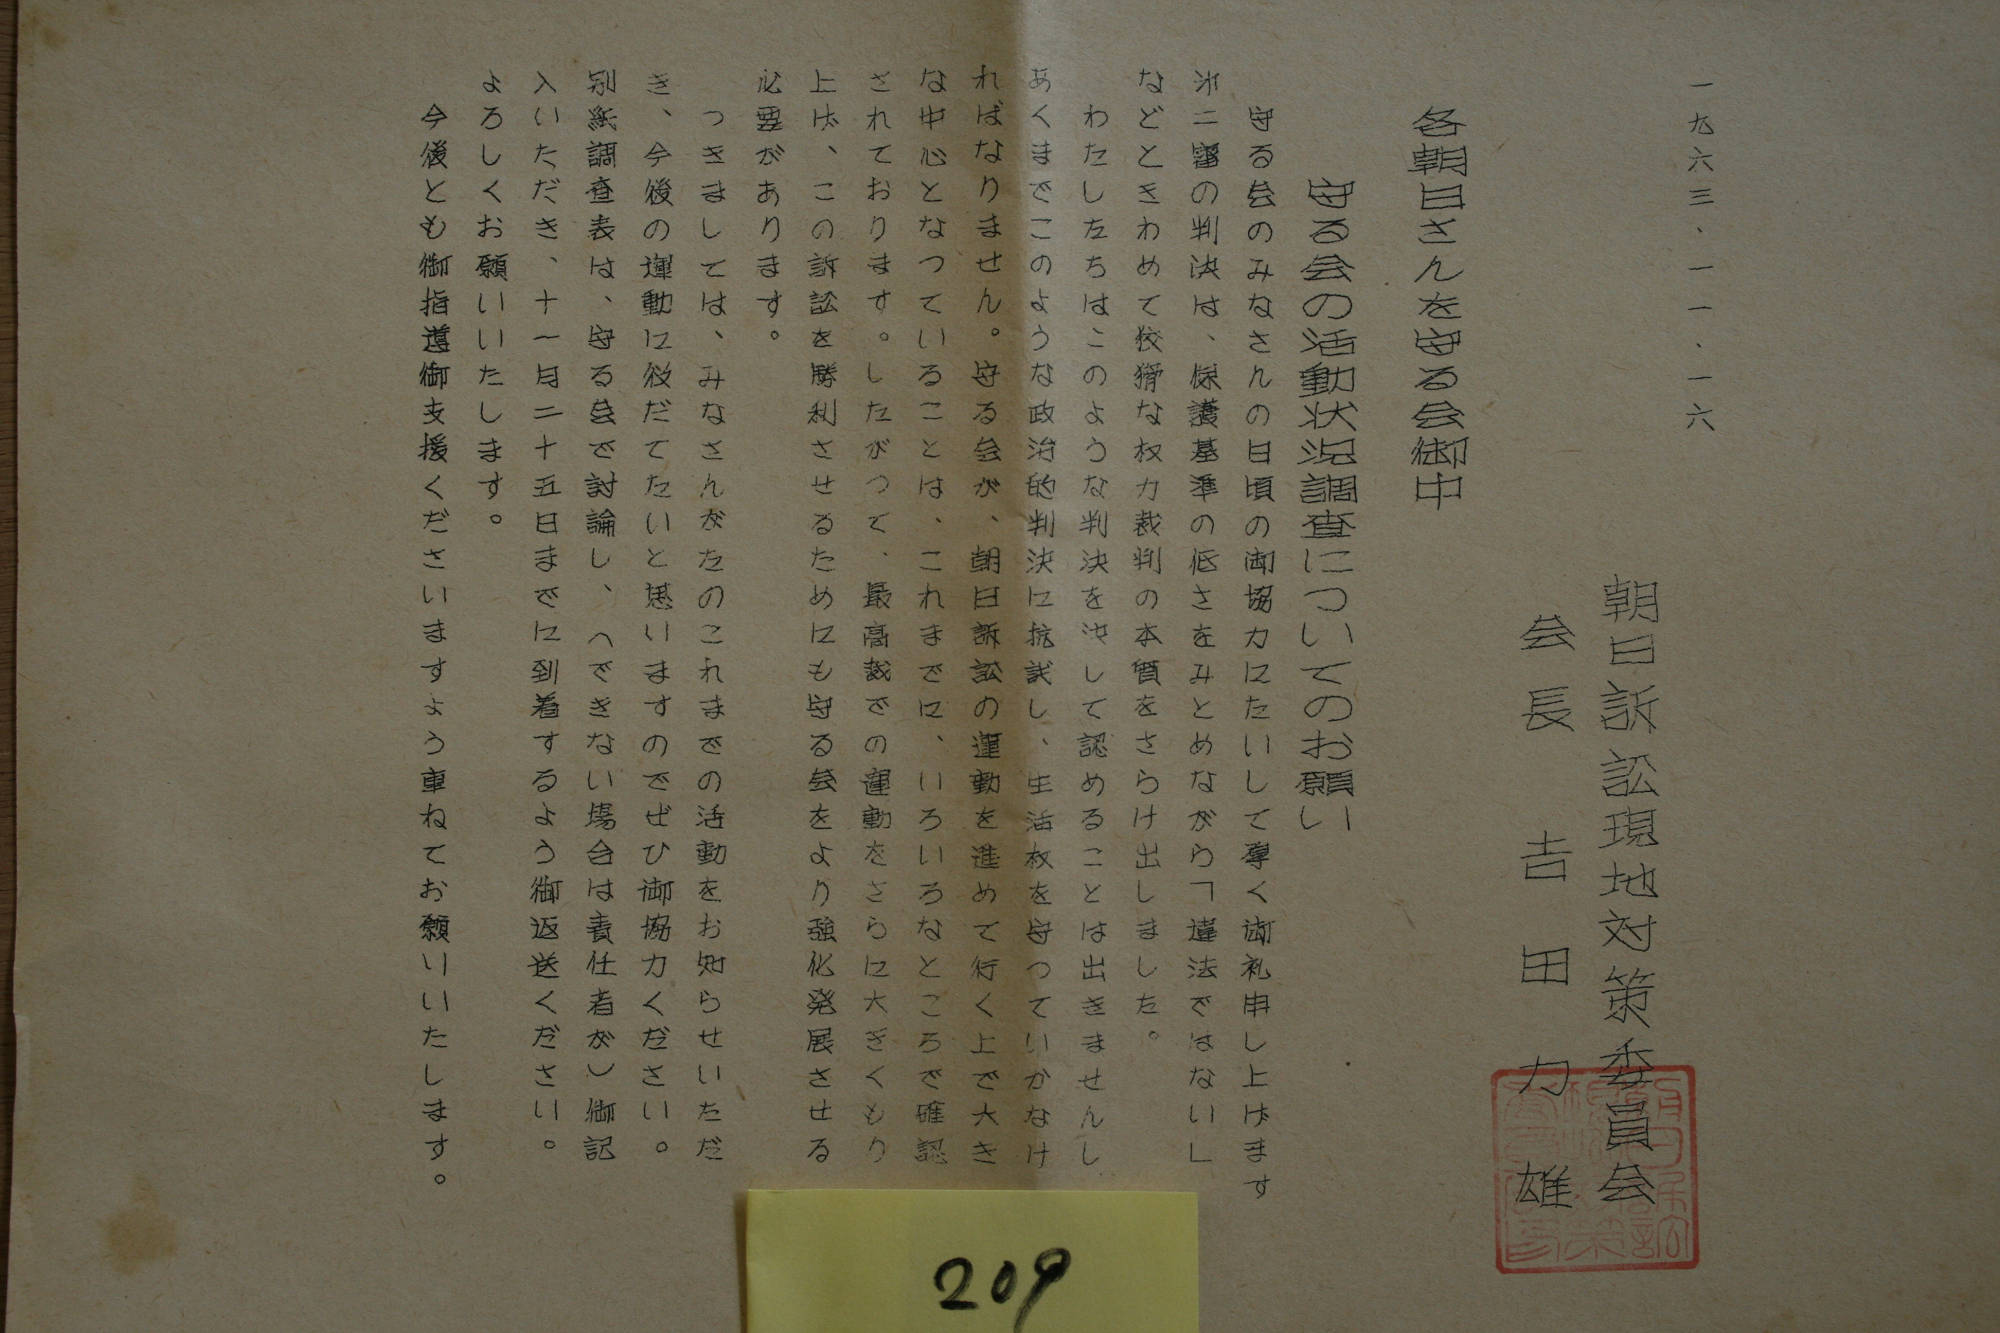 一九六三．一一．一六
朝日訴訟現地対策委員会
会長　吉田力雄
各朝日さんを守る会御中
守る会の活動状況調査についてのお願い
守る会のみなさんの日頃の御協力にたいして厚く御礼申し上げます
㐧二審の判決は、保護基準の低さをみとめながら「違法ではない」
などときわめて狡猾な权力裁判の本質をさらけ出しました。
わたしたちはこのような判決を決して認めることは出きませんし
あくまでこのような政治的判決に抗議し、生活权を守つていかなけ
ればなりません。守る会が、朝日訴訟の運動を進めて行く上で大き
な中心となつていることは、これまでに、いろいろなところで確認
されております。したがつて、最高裁での運動をさらに大きくもり
上げ、この訴訟を勝利させるためにも守る会をより強化発展させる
必要があります。
つきましては、みなさんがたのこれまでの活動をお知らせいただ
き、今後の運動に役だてたいと思いますのでぜひ御協力ください。
別紙調査表は、守る会で討論し、（できない場合は責任者が）御記
入いただき、十一月二十五日までに到着するよう御返送ください。
よろしくお願いいたします。
今後とも御指導御支援くださいますよう重ねてお願いいたします。
209